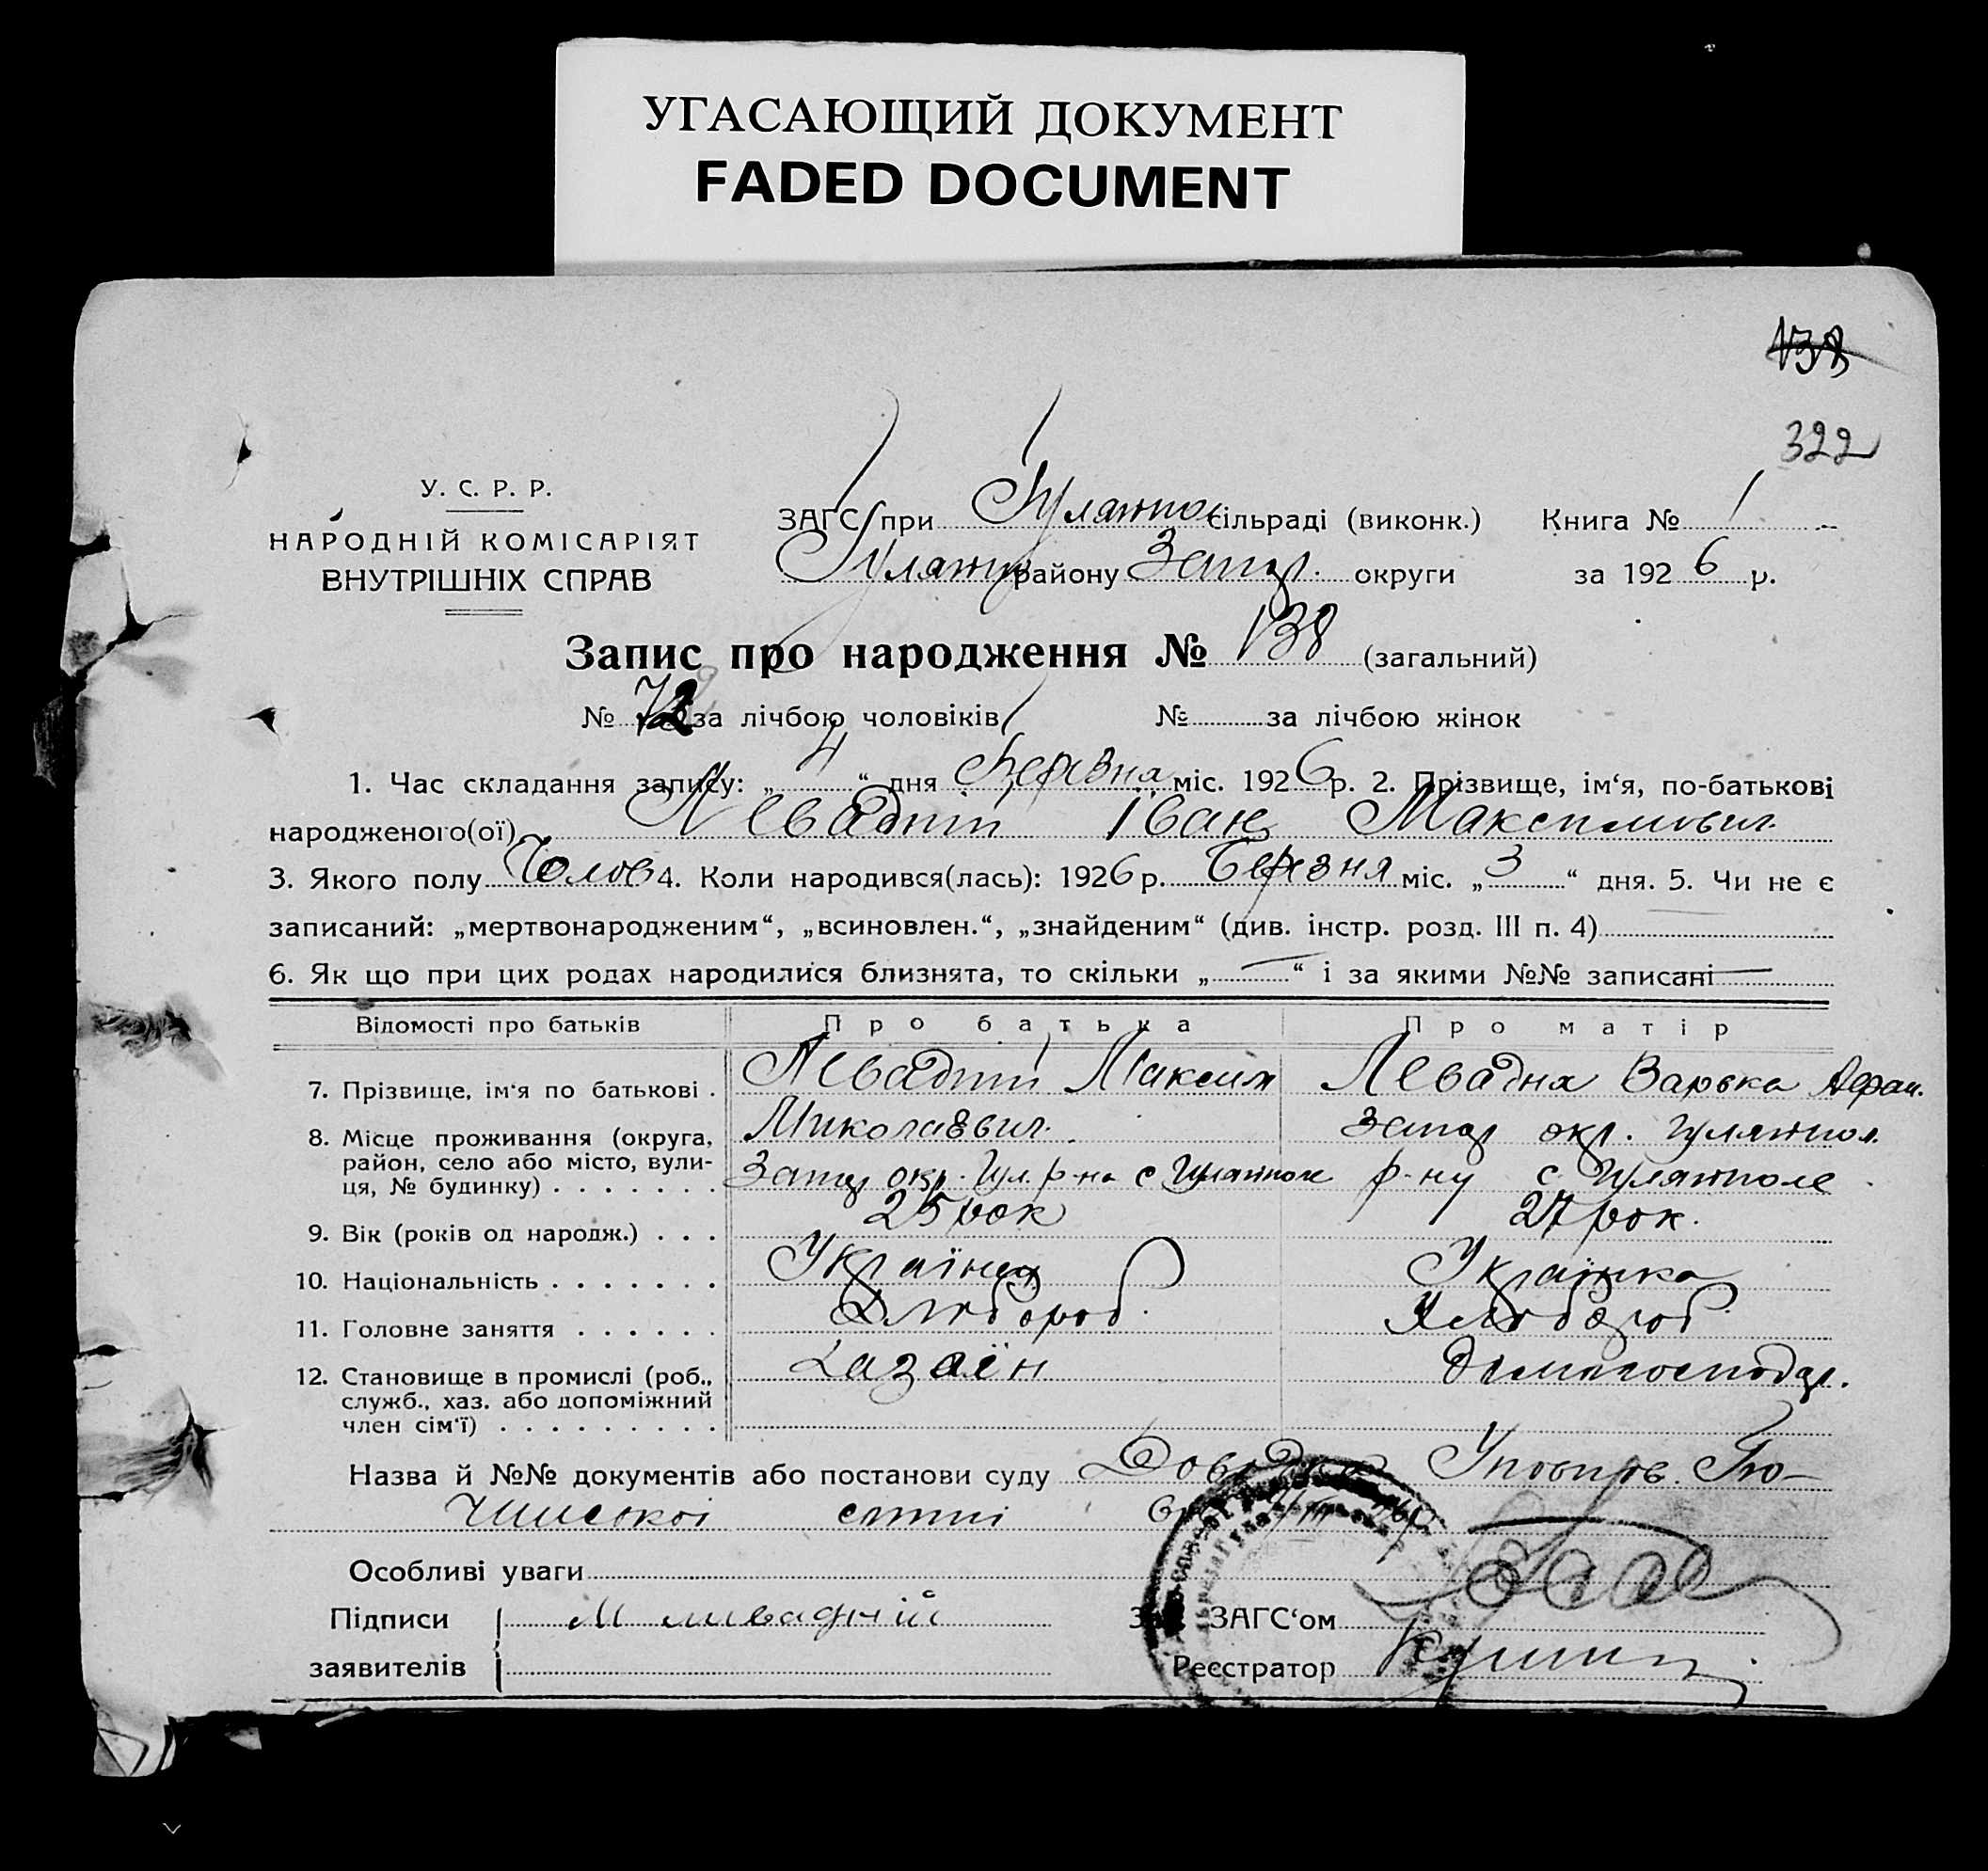 УГАСАЮЩИЙ ДОКУМЕНТ
FADED DOCUMENT
138
322
У. С. Р. Р.
НАРОДНІЙ КОМІСАРІЯТ
ВНУТРІШНІХ СПРАВ
ЗАГС при Гуляйпол сільраді (виконк.) Книга № 1
Гуляйп району Запор. округи за 1926 р.
Запис про народження № 138 (загальний)
№ 72 за лічбою чоловіків № за лічбою жінок
1. Час складання запису: „4“ дня Березня міс. 1926 р. 2. Прізвище, ім‘я, по-батькові
народженого(ої) Левадній Іван Максимович
3. Якого полу Чолов 4. Коли народився(лась): 1926 р. Березня міс. „3“ дня. 5. Чи не є
записаний: „мертвонародженим“, „всиновлен.“, „знайденим“ (див. інстр. розд. III п. 4)
6. Як що при цих родах народилися близнята, то скільки „—“ і за якими №№ записані —
Відомості про батьків Про батька Про матір
7. Прізвище, ім‘я по батькові . Левадній Максим Левадна Варвка Афан.
8. Місце проживання (округа, Миколаєвич. Запор окр. Гуляйпол.
район, село або місто, вули-
ця, № будинку) . . . . . . . Запор окр. Гул. р-на с Гуляйполе р-ну с Гуляйполе
9. Вік (років од народж.) . . . 25 рок 27 рок.
10. Національність . . . . . . . Українец Українка
11. Головне заняття . . . . . . Хлібороб. Хлібороб
12. Становище в промислі (роб., Хазаїн домогосподар.
служб., хаз. або допоміжний
член сім‘ї) . . . . . . . . .
Назва й №№ документів або постанови суду Довідка
Особливі уваги
Підписи М левадний Зав. ЗАГС‘ом
заявителів Реєстратор